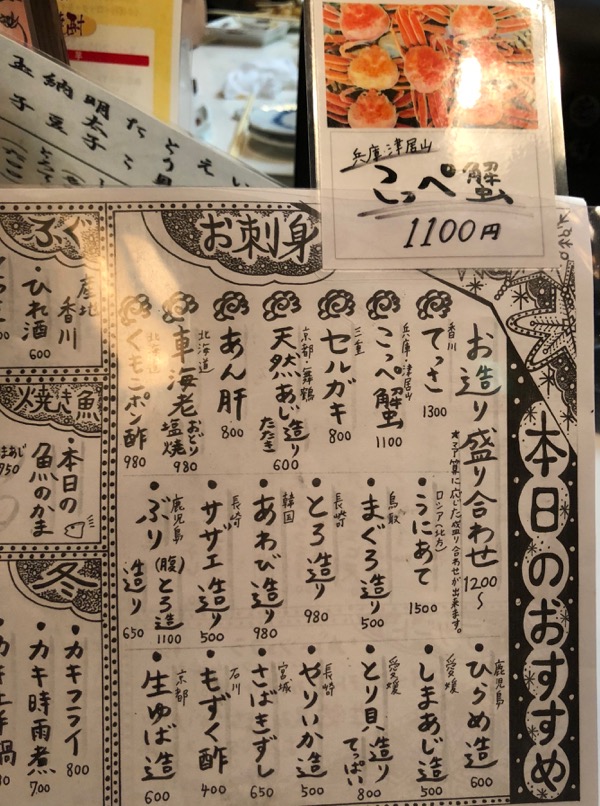 兵庫津居山
こっぺ蟹
1100円
玉子
納豆
明太子
本日のおすすめ
お刺身
お造り盛り合わせ 1200〜
*ご予算に応じた盛り合わせが出来ます。
香川
てっさ 1300
兵庫・津居山
こっぺ蟹 1100
三重
セルガキ 800
京都・舞鶴
天然あじ造り たたき 600
あん肝 800
北海道
車海老 おどり 塩焼 980
北海道
くもこポン酢 980
ロシア(北方)
・うにあて 1500
鳥取
・まぐろ造り 500
長崎
・とろ造り 980
韓国
・あわび造り 980
長崎
・サザエ造り 500
鹿児島
・ぶり造り 650
(腹)とろ造 1100
鹿児島
・ひらめ造 600
愛媛
・しまあじ造 500
愛媛
・とり貝造り てっぱい 800
長崎
・やりいか造 500
宮城
・さばきずし 650
石川
・もずく酢 400
京都
・生ゆば造 600
ふぐ
産地 香川
・ひれ酒 600
焼き魚
・本日の魚のかま
950
冬
・カキフライ 800
・カキ時雨煮 700